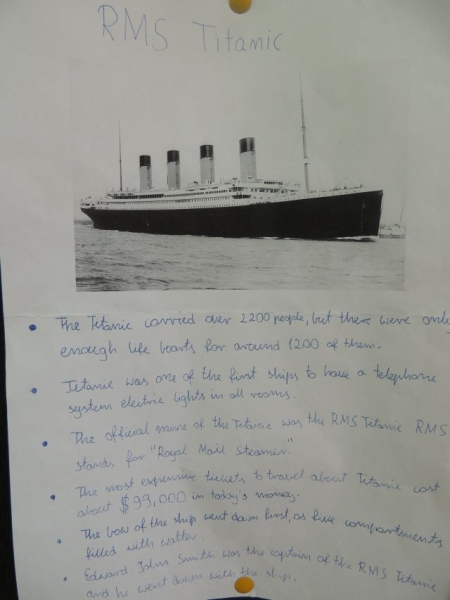 RMS Titanic
• The Titanic carried over 2200 people, but there were only
enough life boats for around 1200 of them.
• Titanic was one of the first ships to have a telephone
system electric lights in all rooms.
• The official name of the Titanic was the RMS Titanic RMS
stands for "Royal Mail Steamer".
• The most expensive tickets to travel about Titanic cost
about $99,000 in today's money.
• The bow of the ship went down first, as five compartments
filled with watter.
• Edward John Smith was the captain of the RMS Titanic
and he went down with the ship.